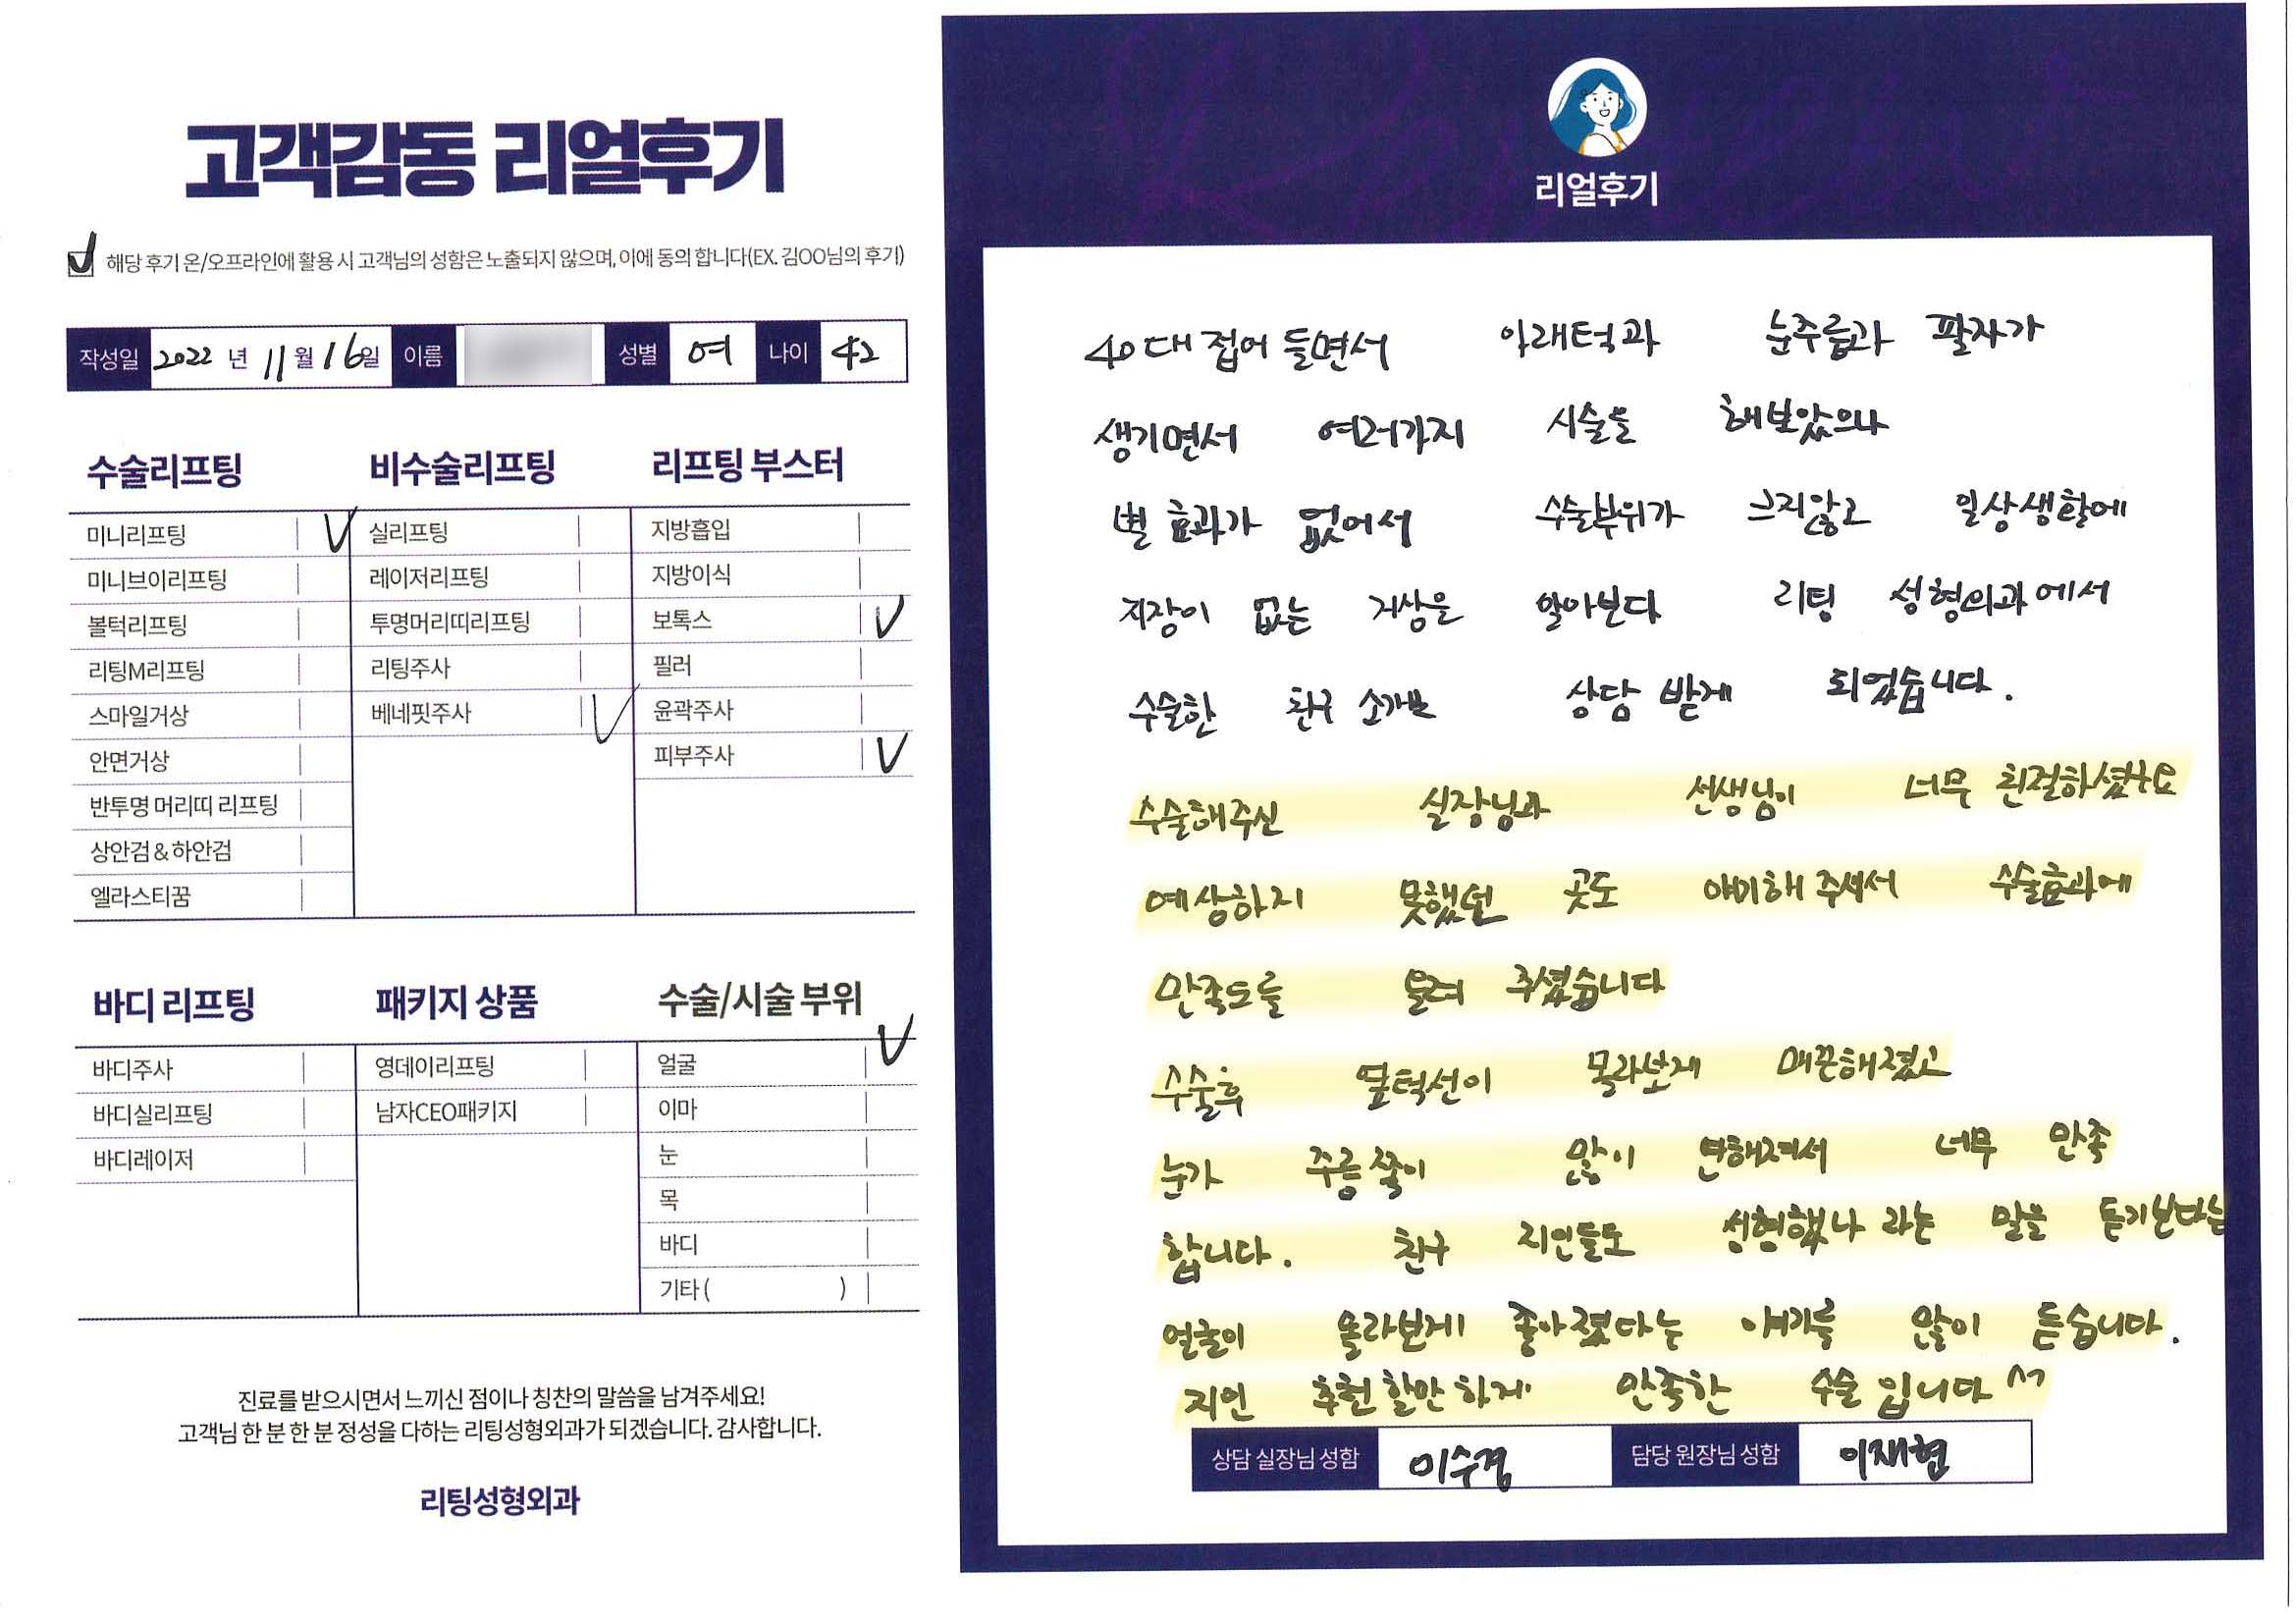 고객감동 리얼후기
해당 후기 온/오프라인에 활용 시 고객님의 성함은 노출되지 않으며, 이에 동의 합니다(EX. 김OO님의 후기)
작성일 2022 년 11 월 16 일 이름 성별 여 나이 42
수술리프팅 비수술리프팅 리프팅 부스터
미니리프팅 실리프팅 지방흡입
미니브이리프팅 레이저리프팅 지방이식
볼턱리프팅 투명머리띠리프팅 보톡스
리팅M리프팅 리팅주사 필러
스마일거상 베네핏주사 윤곽주사
안면거상 피부주사
반투명 머리띠 리프팅
상안검 & 하안검
엘라스티꿈
바디 리프팅 패키지 상품 수술/시술 부위
바디주사 영데이리프팅 얼굴
바디실리프팅 남자CEO패키지 이마
바디레이저 눈
목
바디
기타 ( )
진료를 받으시면서 느끼신 점이나 칭찬의 말씀을 남겨주세요!
고객님 한 분 한 분 정성을 다하는 리팅성형외과가 되겠습니다. 감사합니다.
리팅성형외과
리얼후기
40대 접어 들면서 아래턱과 눈주름과 팔자가
생기면서 여러가지 시술을 해보았으나
별 효과가 없어서 수술부위가 크지않고 일상생활에
지장이 없는 거상을 알아보다 리팅 성형외과에서
수술한 친구 소개로 상담 받게 되었습니다.
수술해주신 실장님과 선생님이 너무 친절하셨구요
예상하지 못했던 곳도 얘기해 주셔서 수술효과에
만족도를 올려 주셨습니다
수술후 턱선이 몰라보게 매끈해졌고
눈가 주름쪽이 많이 연해져서 너무 만족
합니다. 친구 지인들도 성형했나 라는 말을 듣기보다는
얼굴이 몰라보게 좋아졌다는 얘기를 많이 듣습니다.
지인 추천할만 하게 만족한 수술 입니다 ^^
상담 실장님 성함 이수경 담당 원장님 성함 이재현